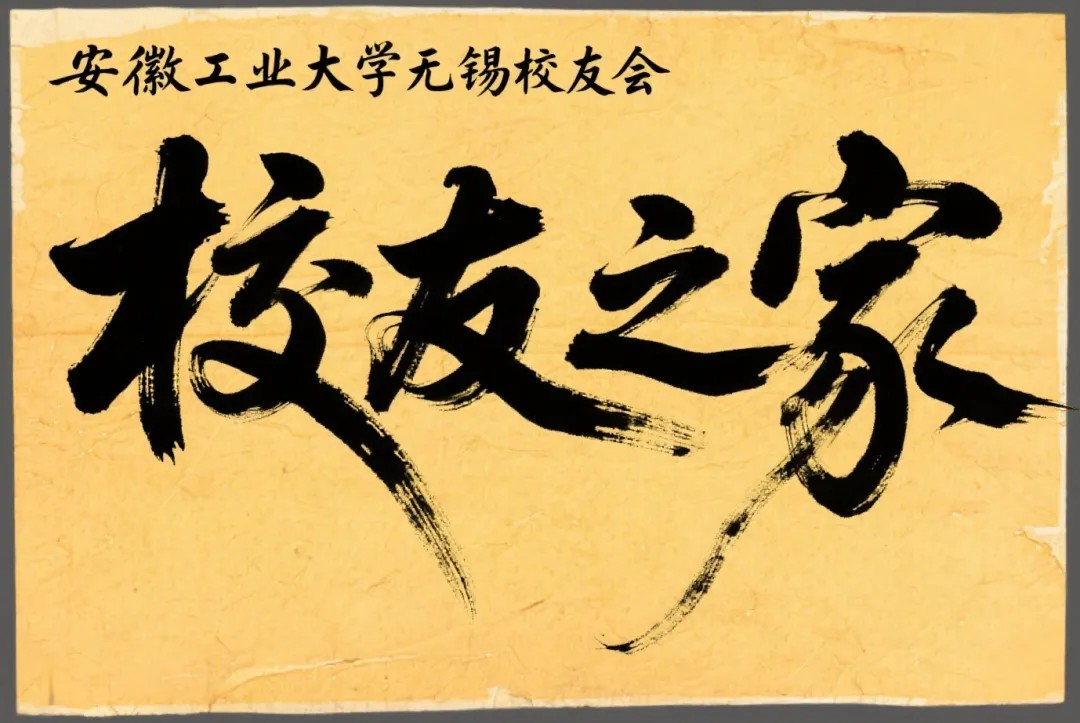 安徽工业大学无锡校友会
校友之家